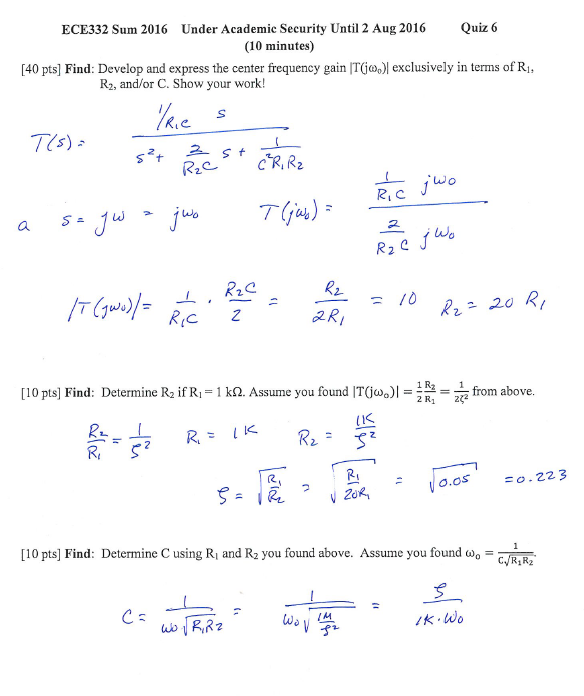 ECE332 Sum 2016 Under Academic Security Until 2 Aug 2016 Quiz 6
(10 minutes)
[40 pts] Find: Develop and express the center frequency gain |T(jω₀)| exclusively in terms of R₁,
R₂, and/or C. Show your work!
T(s) = (1/R₁C s) / (s² + 2/(R₂C) s + 1/(C²R₁R₂))
a s = jω = jω₀ T(jω₀) = (1/(R₁C) jω₀) / (2/(R₂C) jω₀)
|T(jω₀)| = 1/(R₁C) · R₂C/2 = R₂/(2R₁) = 10 R₂ = 20 R₁
[10 pts] Find: Determine R₂ if R₁ = 1 kΩ. Assume you found |T(jω₀)| = 1/2 R₂/R₁ = 1/(2ζ²) from above.
R₂/R₁ = 1/ζ² R₁ = 1K R₂ = 1K/ζ²
ζ = √(R₁/R₂) = √(R₁/20R₁) = √0.05 = 0.223
[10 pts] Find: Determine C using R₁ and R₂ you found above. Assume you found ω₀ = 1/(C√(R₁R₂)).
C = 1/(ω₀√(R₁R₂)) = 1/(ω₀√(1M/ζ²)) = ζ/(1K·ω₀)